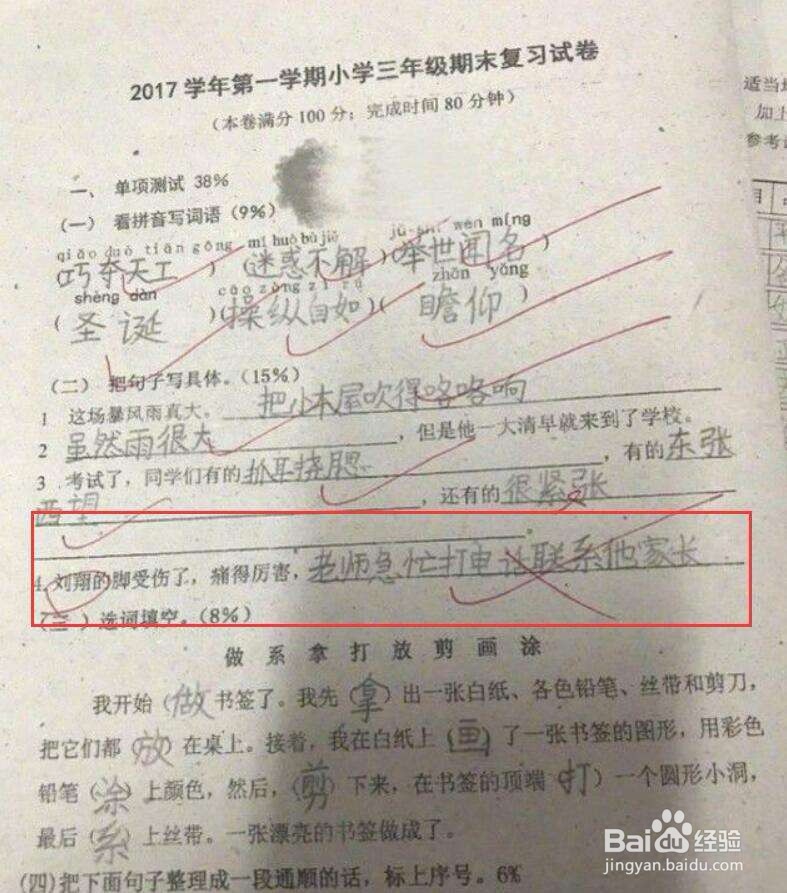 2017学年第一学期小学三年级期末复习试卷
（本卷满分100分；完成时间80分钟）
适当
加上
参考
一、 单项测试 38%
（一） 看拼音写词语（9%）
qiǎo duó tiān gōng mí huò bù jiě wén míng
（巧夺天工）（迷惑不解）（举世闻名）
shèng dàn zhān yǎng
（圣诞）（操纵自如）（瞻仰）
（二） 把句子写具体。（15%）
1 这场暴风雨真大。把小木屋吹得咯咯响
2 虽然雨很大，但是他一大清早就来到了学校。
3 考试了，同学们有的抓耳挠腮，有的东张
西望，还有的很紧张
。
4. 刘翔的脚受伤了，痛得厉害，老师急忙打电话联系他家长
（三）选词填空。（8%）
做 系 拿 打 放 剪 画 涂
我开始（做）书签了。我先（拿）出一张白纸、各色铅笔、丝带和剪刀，
把它们都（放）在桌上。接着，我在白纸上（画）了一张书签的图形，用彩色
铅笔（涂）上颜色，然后，（剪）下来，在书签的顶端（打）一个圆形小洞，
最后（系）上丝带。一张漂亮的书签做成了。
(四)把下面句子整理成一段通顺的话，标上序号。6%
Baidu经验
jingyan.baidu.com